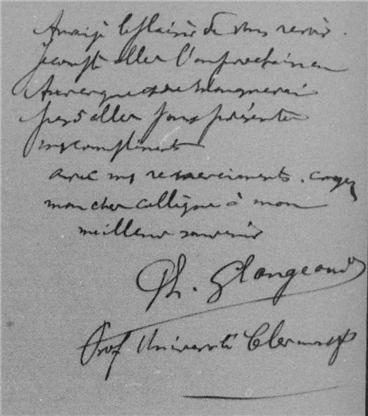 Aurai-je le plaisir de vous revoir.
Je compte aller l'an prochain en
Auvergne et ne manquerai
pas d'aller vous présenter
mes compliments
avec mes remerciements. croyez
mon cher collègue à mon
meilleur souvenir
Ph. Glangeaud
Prof Université Clermont